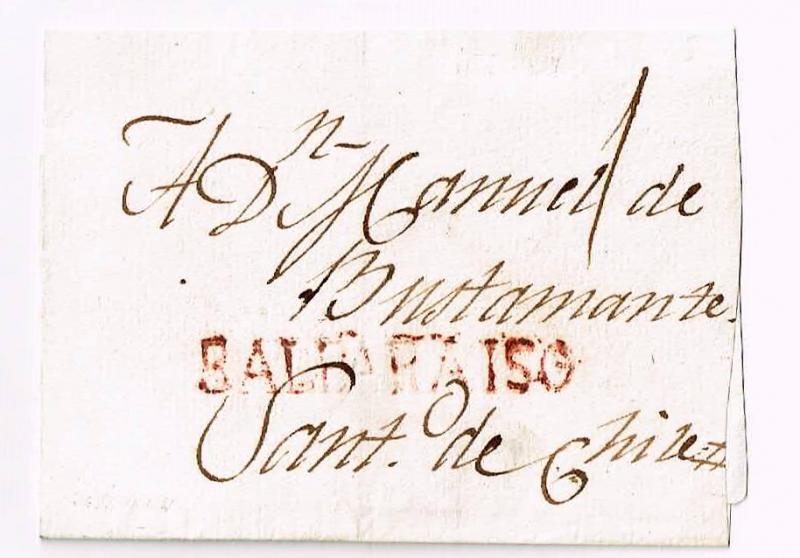 A Dn Manuel de
Bustamante.
BALPARAISO
Santo. de Chile